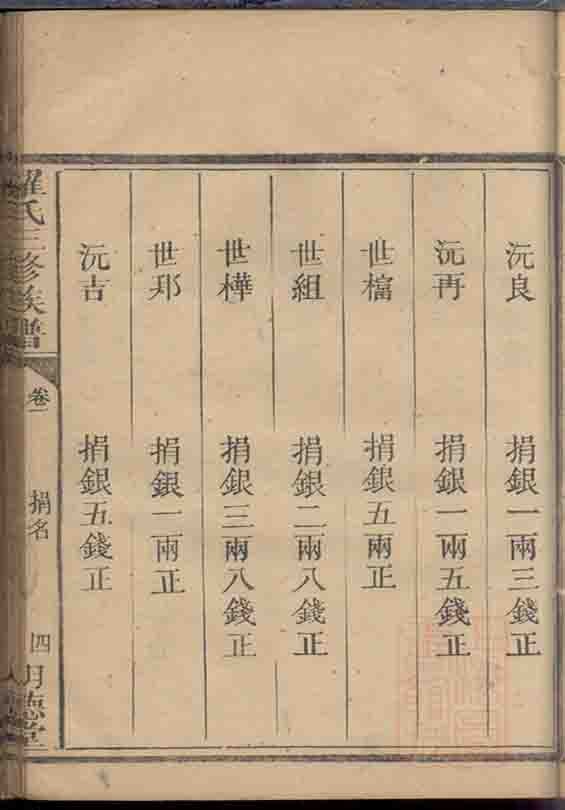 沅良 捐銀一兩三錢正
沅再 捐銀一兩五錢正
世檔 捐銀五兩正
世組 捐銀二兩八錢正
世樺 捐銀三兩八錢正
世邦 捐銀一兩正
沅吉 捐銀五錢正
羅氏三修族譜 卷一 捐名 四 明德堂